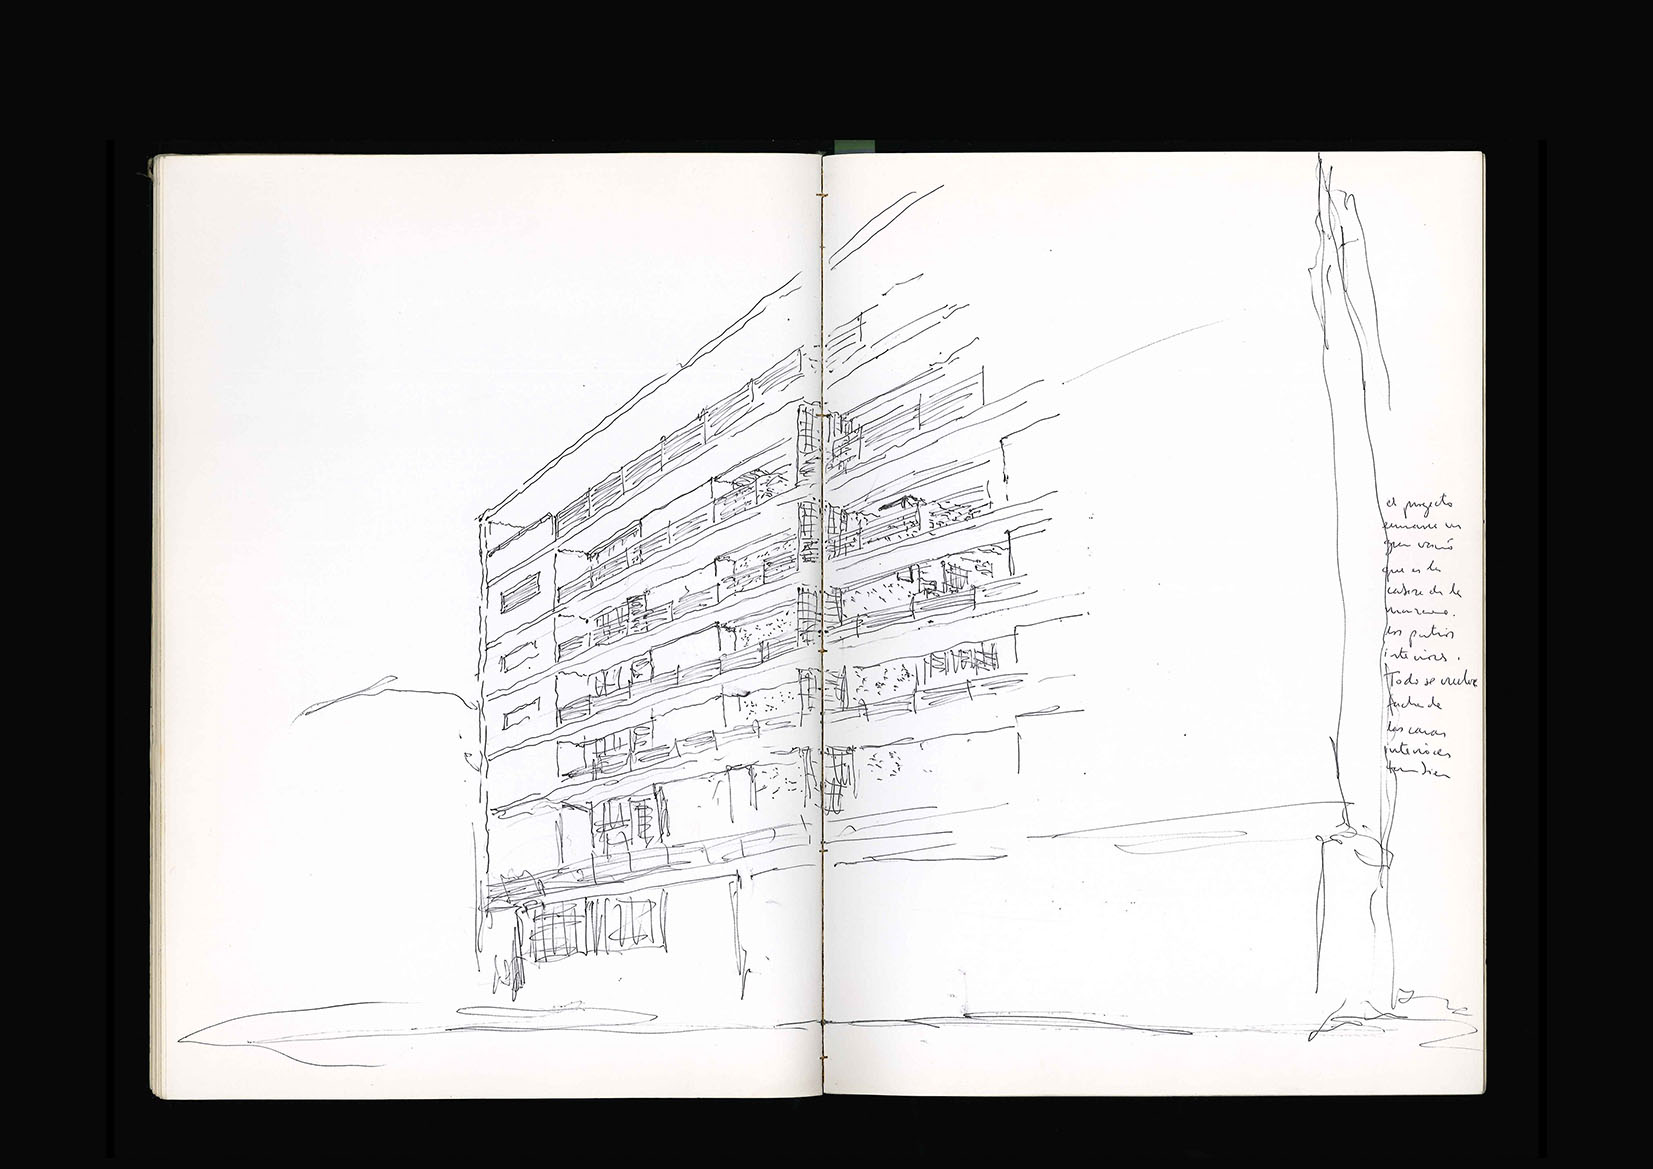 el proyecto
enmarca un
gran vacío
que es la
cabeza de la
manzana.
los patios
interiores.
Todo se vuelve
fachada
las caras
interiores
también